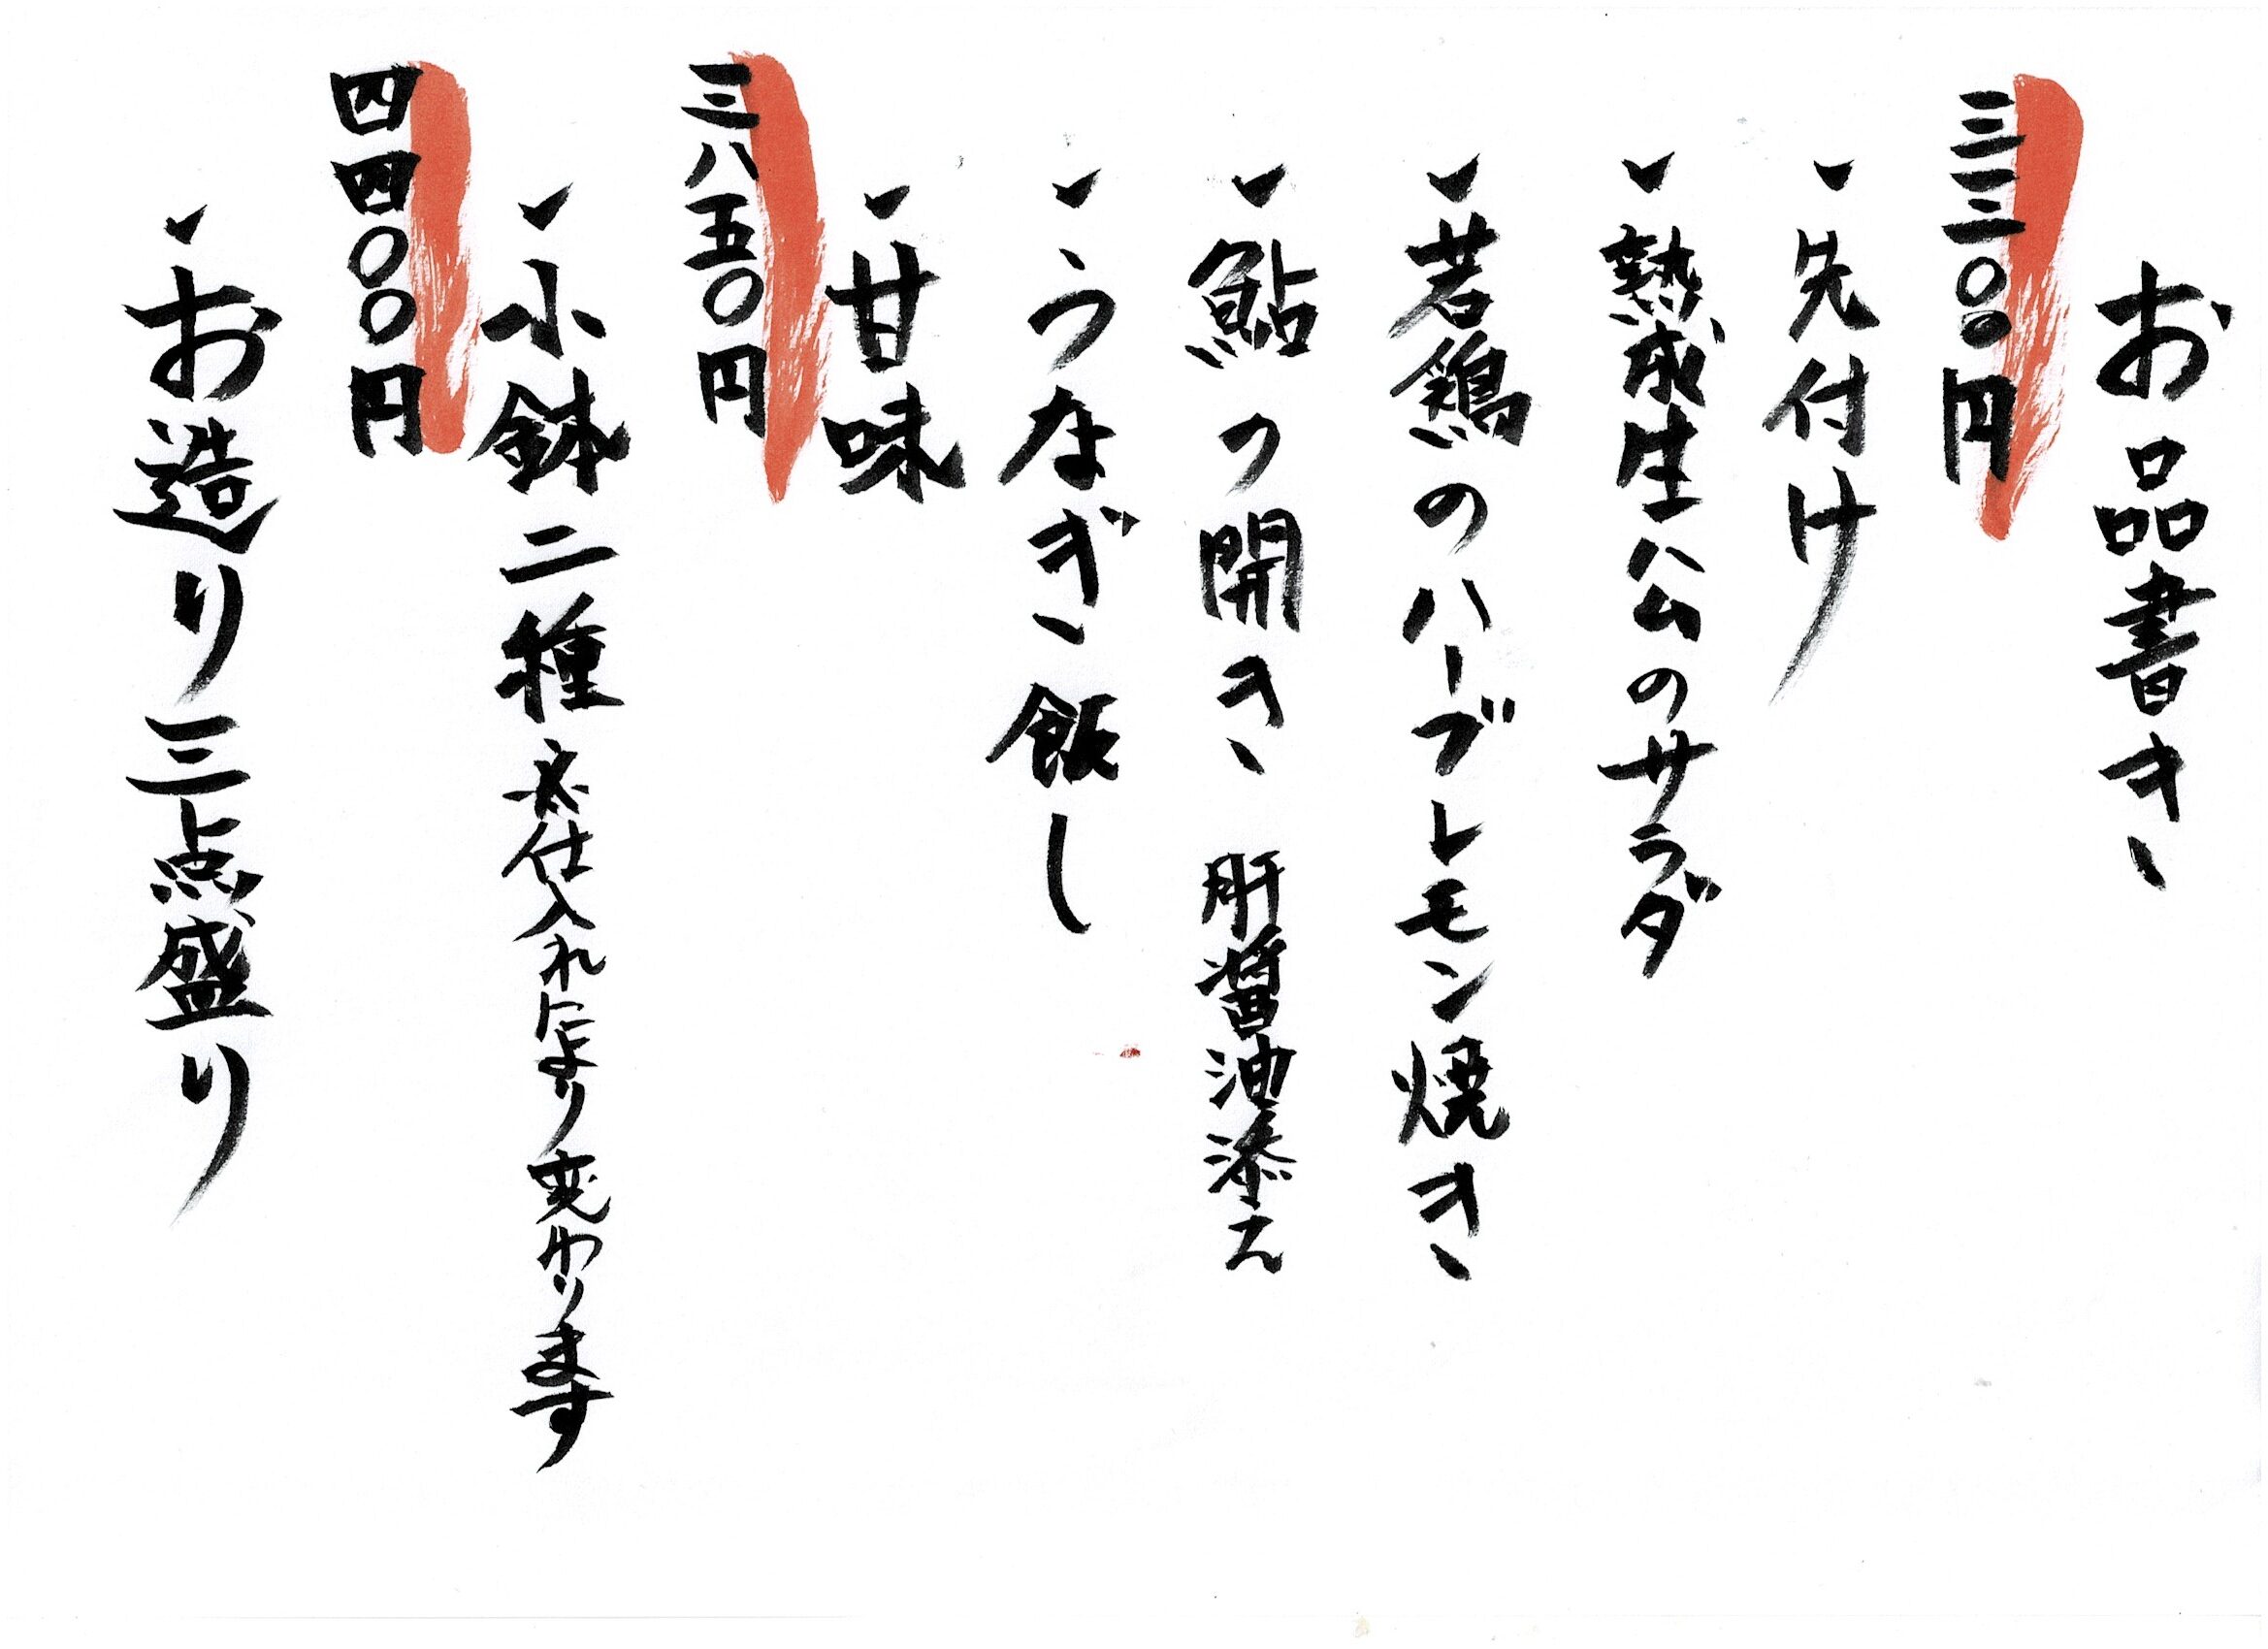 お品書き
三三〇〇円
先付け
熟成生ハムのサラダ
若鶏のハーブレモン焼き
鮎の開き 肝醤油添え
うなぎ飯し
甘味
三八五〇円
小鉢二種 仕入れにより変わります
四四〇〇円
お造り三点盛り